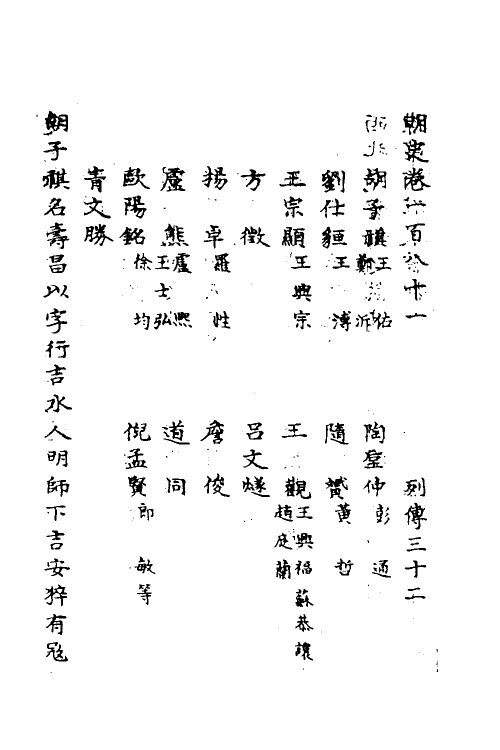 史卷一百八十一 列傳三十二
胡子祺 王佑 鄭沂 陶垕仲 彭通
劉仕貆 王溥 隨贇 黃哲
王宗顯 王興宗 王觀 王興福 蘇恭讓 趙庭蘭
方徵 呂文燧
楊卓 羅性 詹俊
盧熊 盧熙 王士弘 道同
歐陽銘 徐均 倪孟賢 郎敏等
青文勝
胡子祺名壽昌以字行吉水人明師下吉安猝有寇